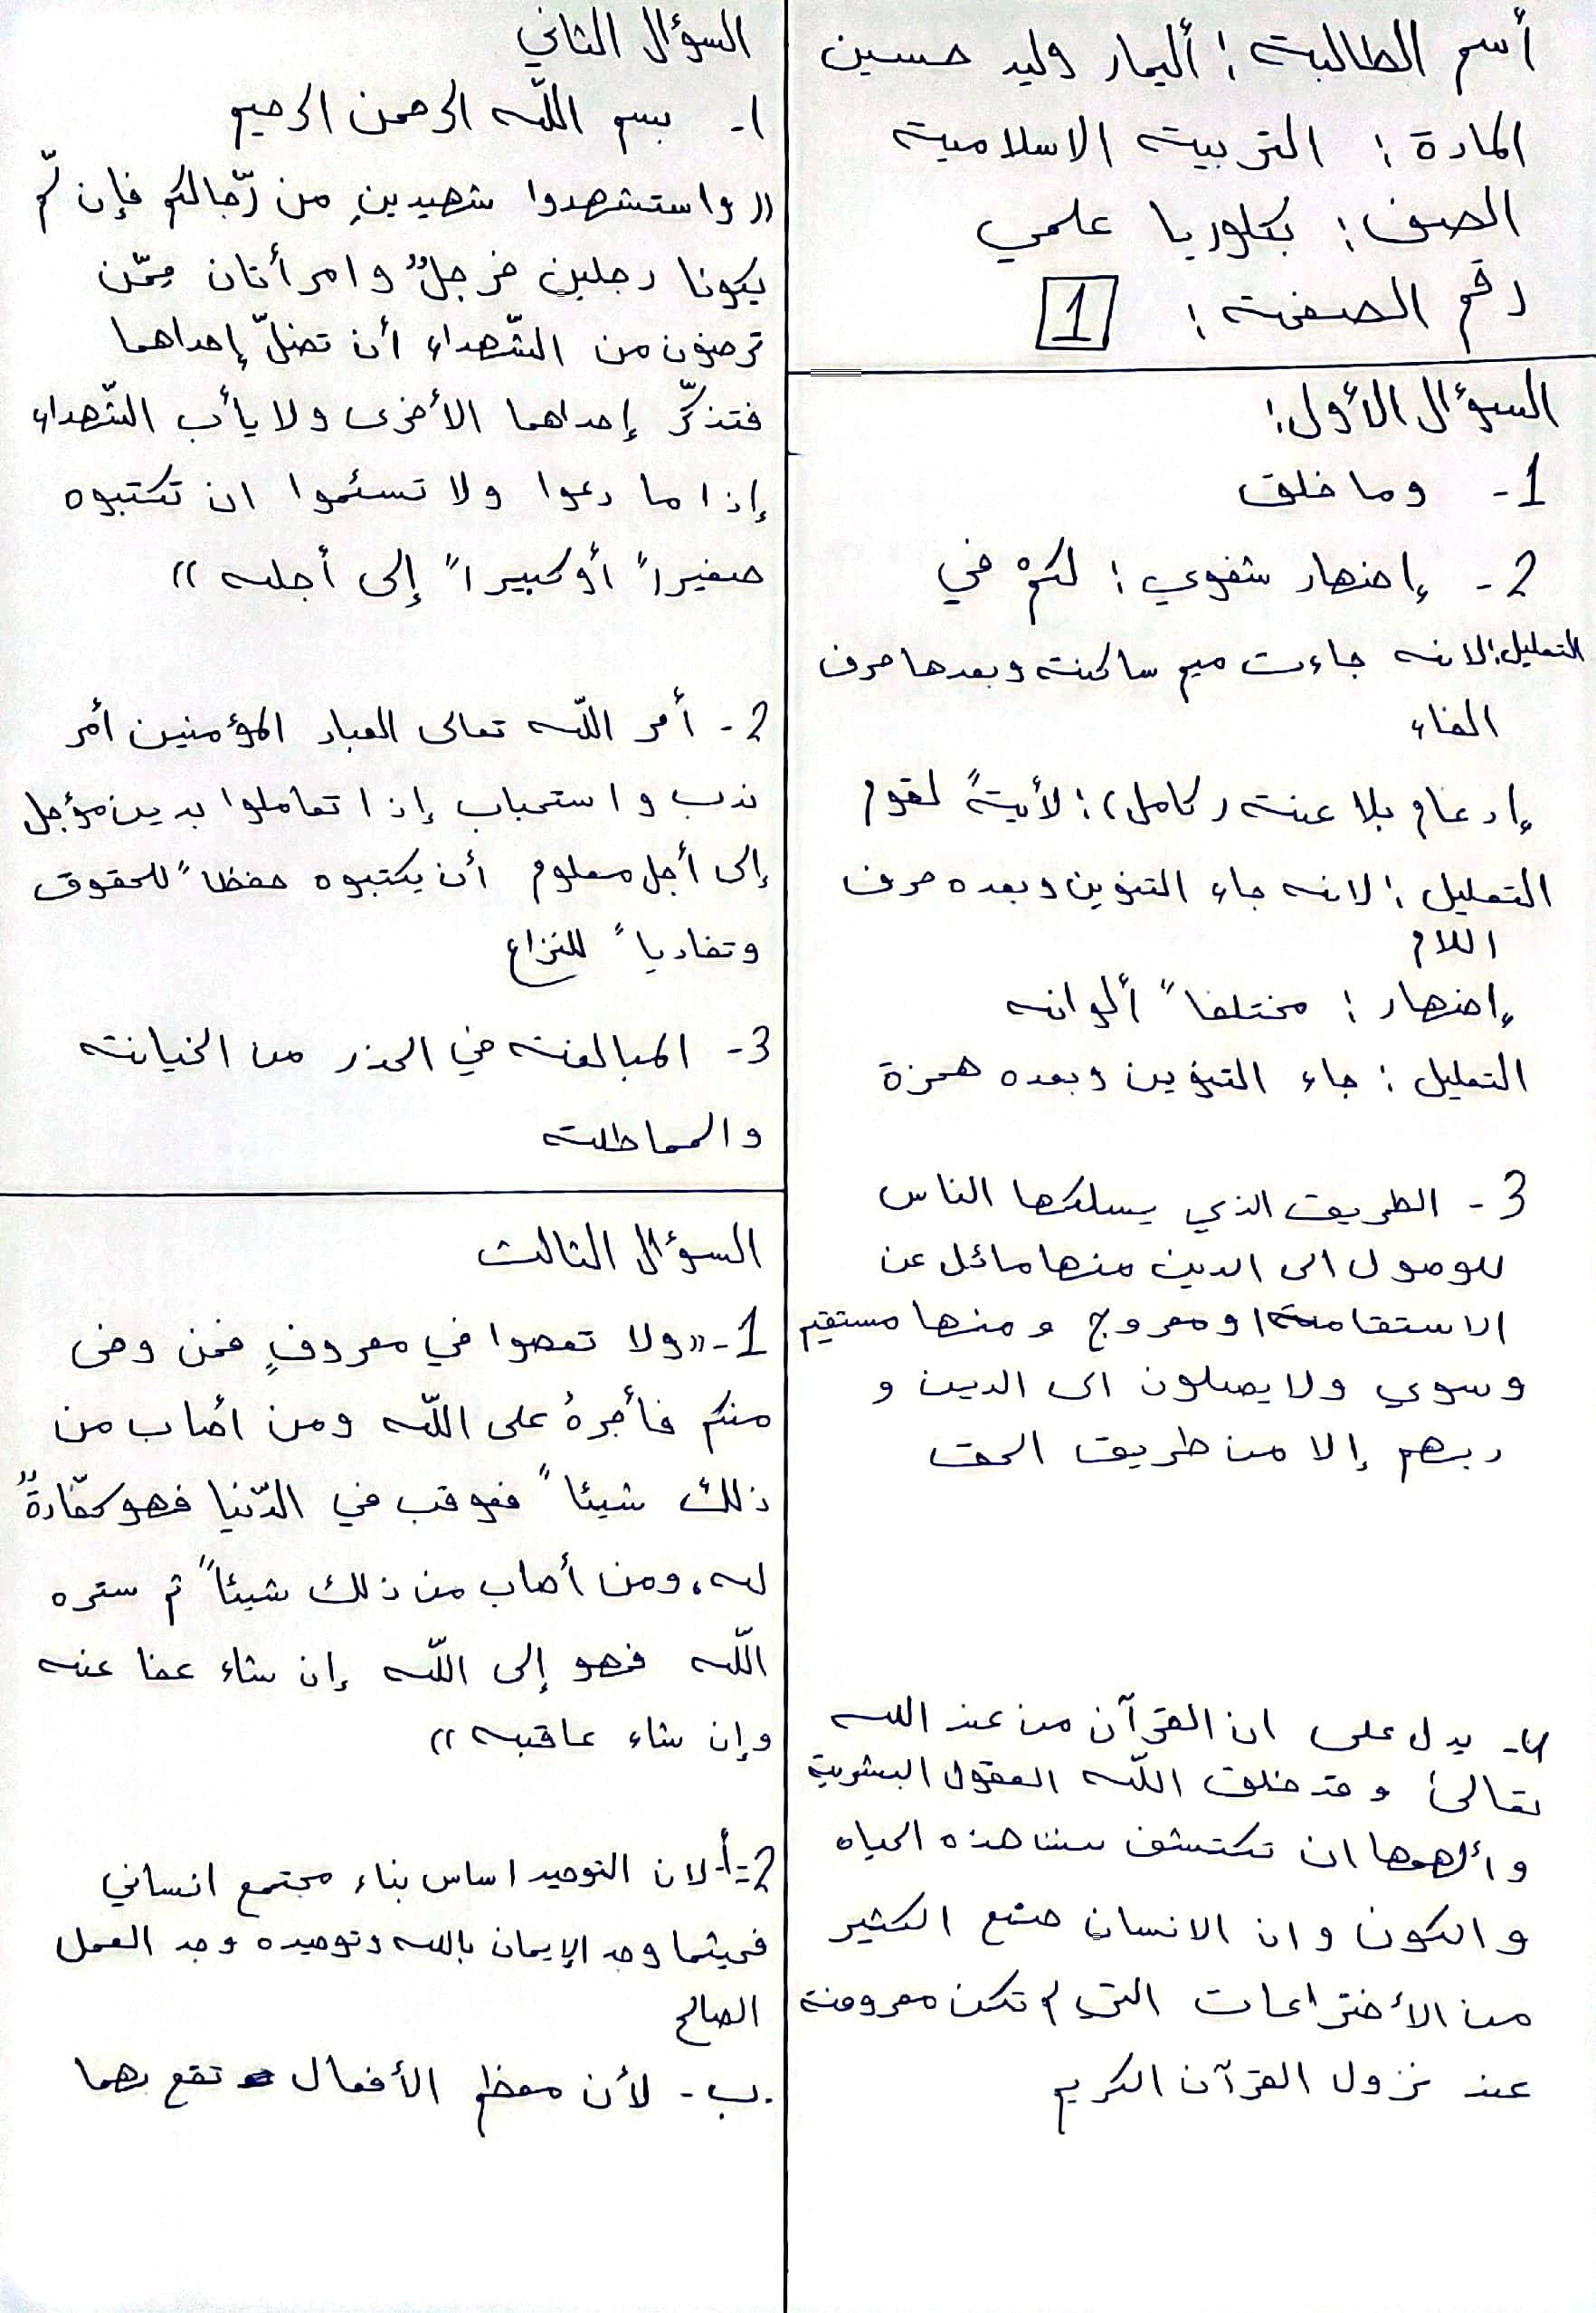 أسم الطالبة : أليمار وليد حسين
المادة : التربية الاسلامية
الصف : بكلوريا علمي
رقم الصفحة : 1
السؤال الأول :
1- وما خلق
2- إضهار شفوي : لكمْ في
التعليل : لانه جاءت ميم ساكنة وبعدها حرف
الفاء
إدغام بلا غنة (كامل) : لأيةً لقوم
التعليل : لانه جاء التنوين وبعده حرف
اللام
إضهار : مختلفاً ألوانه
التعليل : جاء التنوين وبعده همزة
3- الطريق الذي يسلكها الناس
للوصول الى الدين منها مائل عن
الاستقامة او معووج ومنها مستقيم
وسوي ولا يصلون الى الدين و
ربهم إلا من طريق الحق
4- يدل على ان القرآن من عند الله
تعالى وقد خلق الله العقول البشرية
وألهمها ان تكتشف سننا هذه الحياه
والكون وان الانسان صنع الكثير
من الأختراعات التي لم تكن معروفة
عند نزول القرآن الكريم
السؤال الثاني
1- بسم اللّه الرحمن الرحيم
(( واستشهدوا شهيدينِ من رّجالكم فإن لّم
يكونا رجلين فرجلٌ وامرأتان ممّن
ترضون من الشّهداء أن تضلّ إحداهما
فتذكّر إحداهما الأخرى ولا يأب الشّهداء
إذا ما دعوا ولا تسئموا ان تكتبوه
صغيراً أو كبيراً إلى أجله ))
2- أمر اللّه تعالى العباد المؤمنين أمر
ندب واستحباب إذا تعاملوا بدين مؤجل
إلى أجل معلوم أن يكتبوه حفظاً للحقوق
وتفادياً للنزاع
3- المبالغة في الحذر من الخيانة
والمماطلة
السؤال الثالث
1- ((ولا تعصوا في معروفٍ فمن وفى
منكم فأجرهُ على اللّه ومن أصاب من
ذلك شيئاً فعوقب في الدّنيا فهو كفّارةٌ
له، ومن أصاب من ذلك شيئاً ثم ستره
اللّه فهو إلى اللّه إن شاء عفا عنه
وإن شاء عاقبه ))
2- أ- لان التوحيد اساس بناء مجتمع انساني
فحيثما وجد الإيمان بالله وتوحيده وجد العمل
الصالح
ب- لأن معظم الأفعال تقع بهما